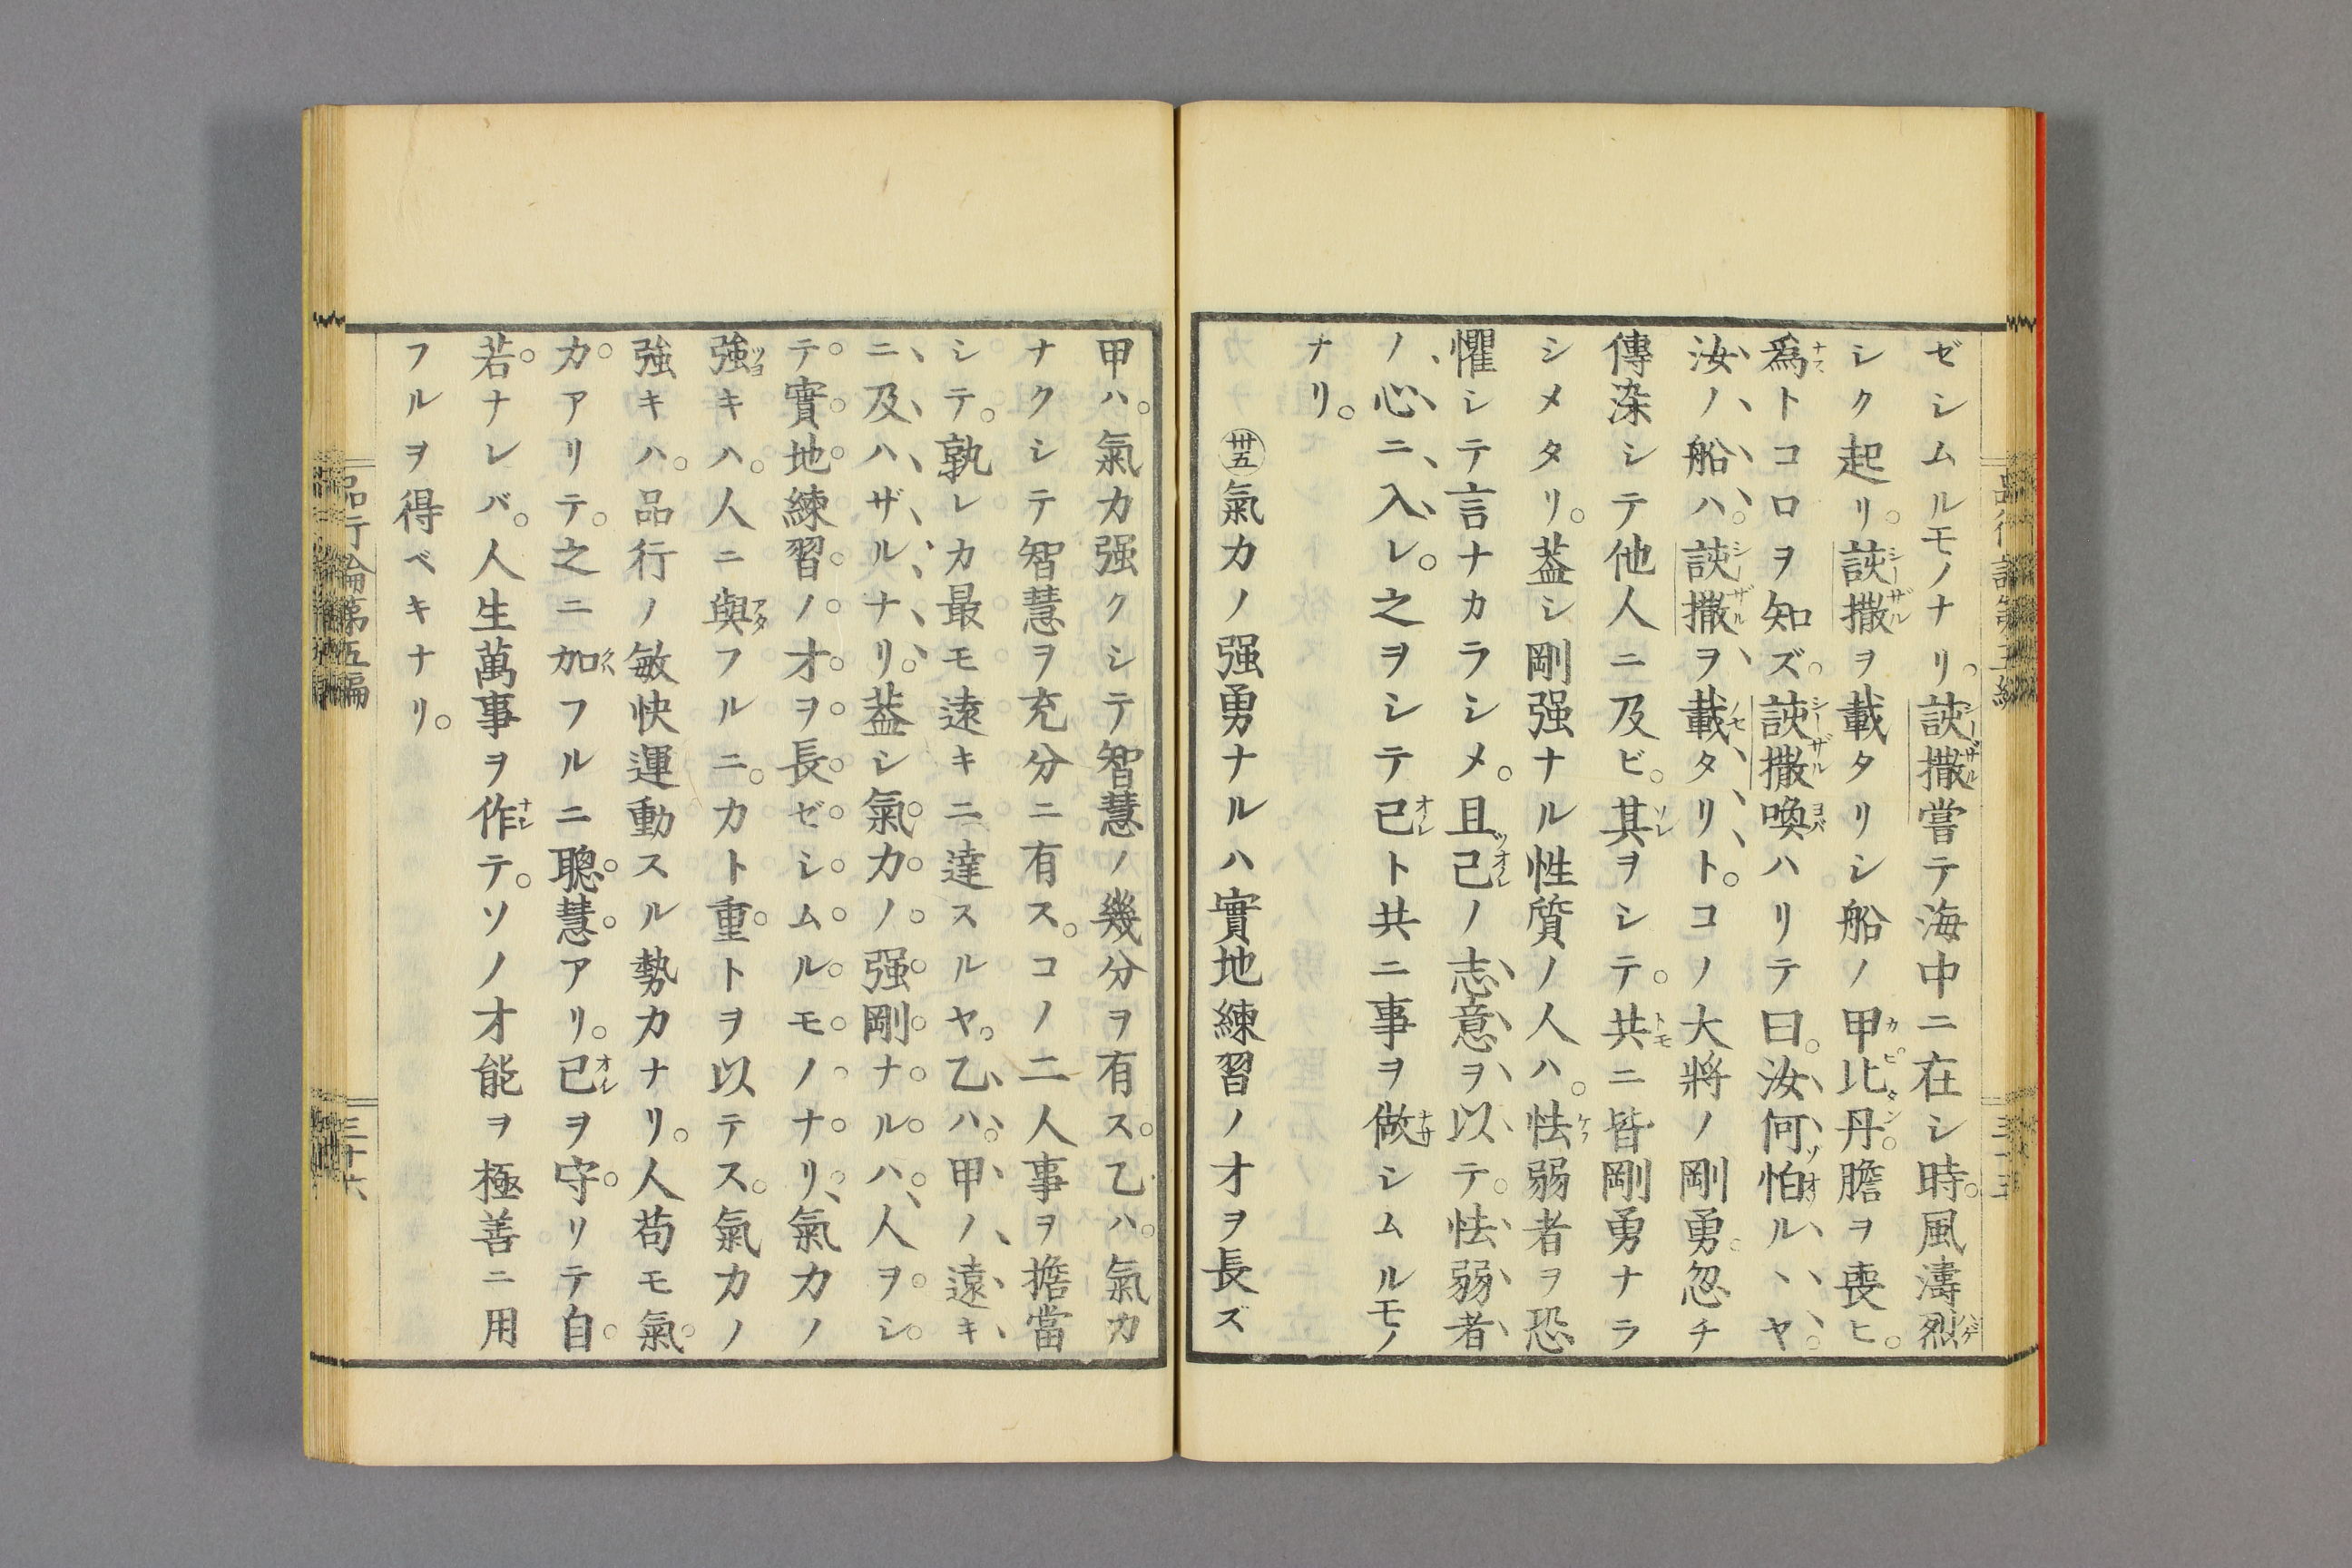 ゼシムルモノナリ。諛撒嘗テ海中ニ在シ時。風濤烈
シク起リ。諛撒ヲ載タリシ船ノ甲比丹。膽ヲ喪ヒ。
爲トコロヲ知ズ。諛撒喚ハリテ曰。汝何怕ルヽヤ。
汝ノ船ハ。諛撒ヲ載タリト。コノ大將ノ剛勇。忽チ
傳染シテ他人ニ及ビ。其ヲシテ。共ニ皆剛勇ナラ
シメタリ。葢シ剛强ナル性質ノ人ハ。怯弱者ヲ恐
懼シテ言ナカラシメ。且己ノ志意ヲ以テ。怯弱者
ノ心ニ入レ。之ヲシテ己ト共ニ事ヲ做シムルモノ
ナリ。
卅五氣力ノ强勇ナルハ實地練習ノ才ヲ長ズ
甲ハ。氣力强クシテ智慧ノ幾分ヲ有ス。乙ハ。氣力
ナクシテ智慧ヲ充分ニ有ス。コノ二人事ヲ擔當
シテ。孰レカ最モ遠キニ達スルヤ。乙ハ。甲ノ遠キ
ニ及ハザルナリ。葢シ氣力ノ强剛ナルハ、人ヲシ
テ實地練習ノ才ヲ長ゼシムルモノナリ、氣力ノ
強キハ。人ニ與フルニ。力ト重トヲ以テス。氣力ノ
強キハ。品行ノ敏快運動スル勢力ナリ。人苟モ氣
力アリテ。之ニ加フルニ聰慧アリ。己ヲ守リテ自
若ナレバ。人生萬事ヲ作テ。ソノ才能ヲ極善ニ用
フルヲ得ベキナリ。
品行論第五編
三十六